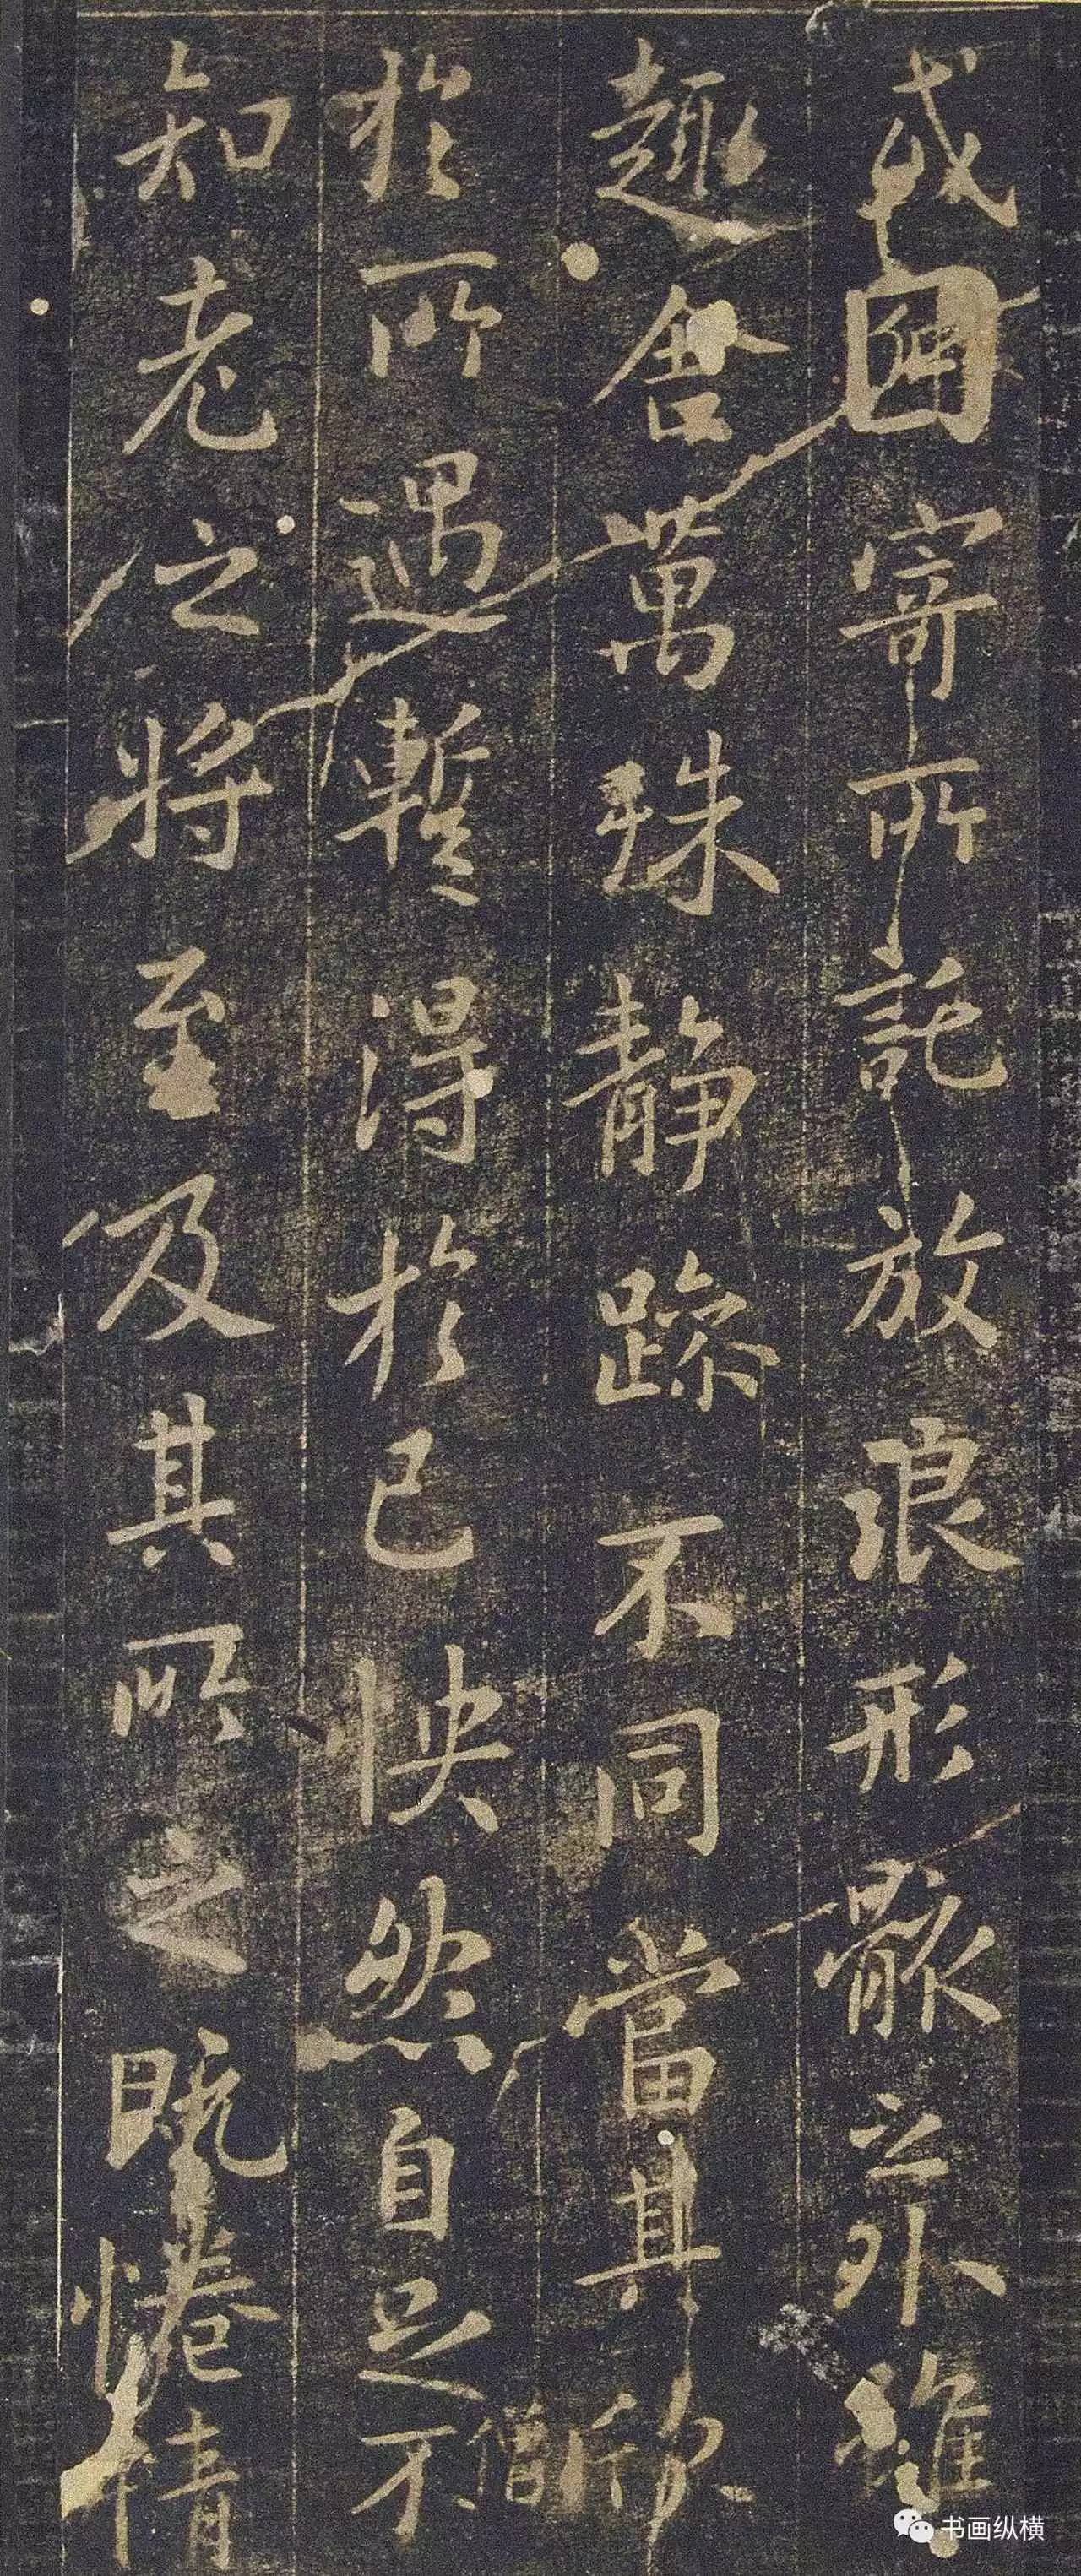 或因寄所託放浪形骸之外雖
趣舍萬殊静躁不同當其欣
僧
於所遇暫得於己怏然自足不
知老之將至及其所之既惓情
书画纵横